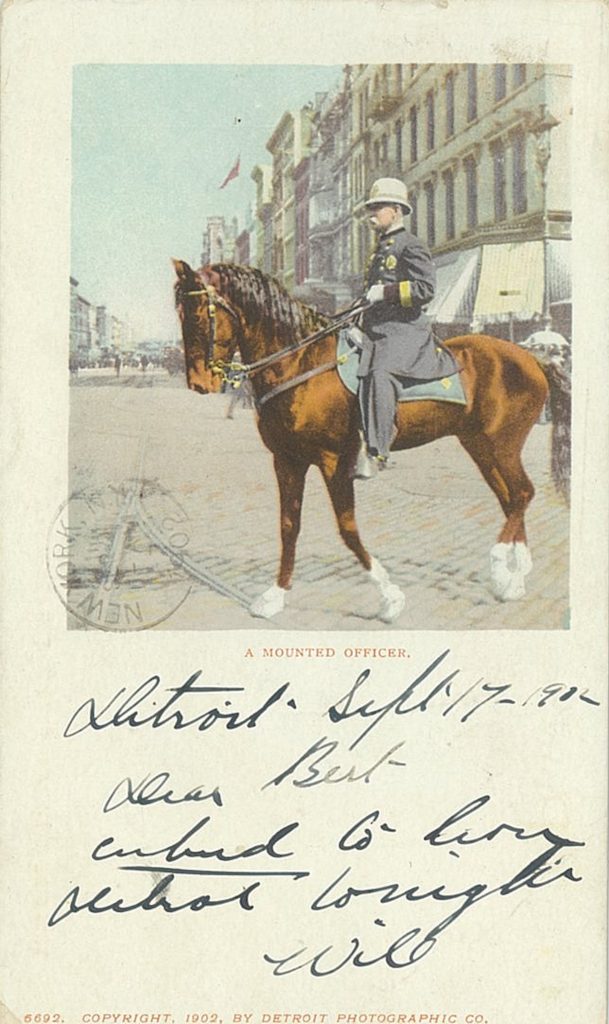 NEW YORK, N.Y.
A MOUNTED OFFICER.
Detroit- Sept 17-1902
Dear Bert
to
Detroit tonight
Will
6692. COPYRIGHT, 1902, BY DETROIT PHOTOGRAPHIC CO.